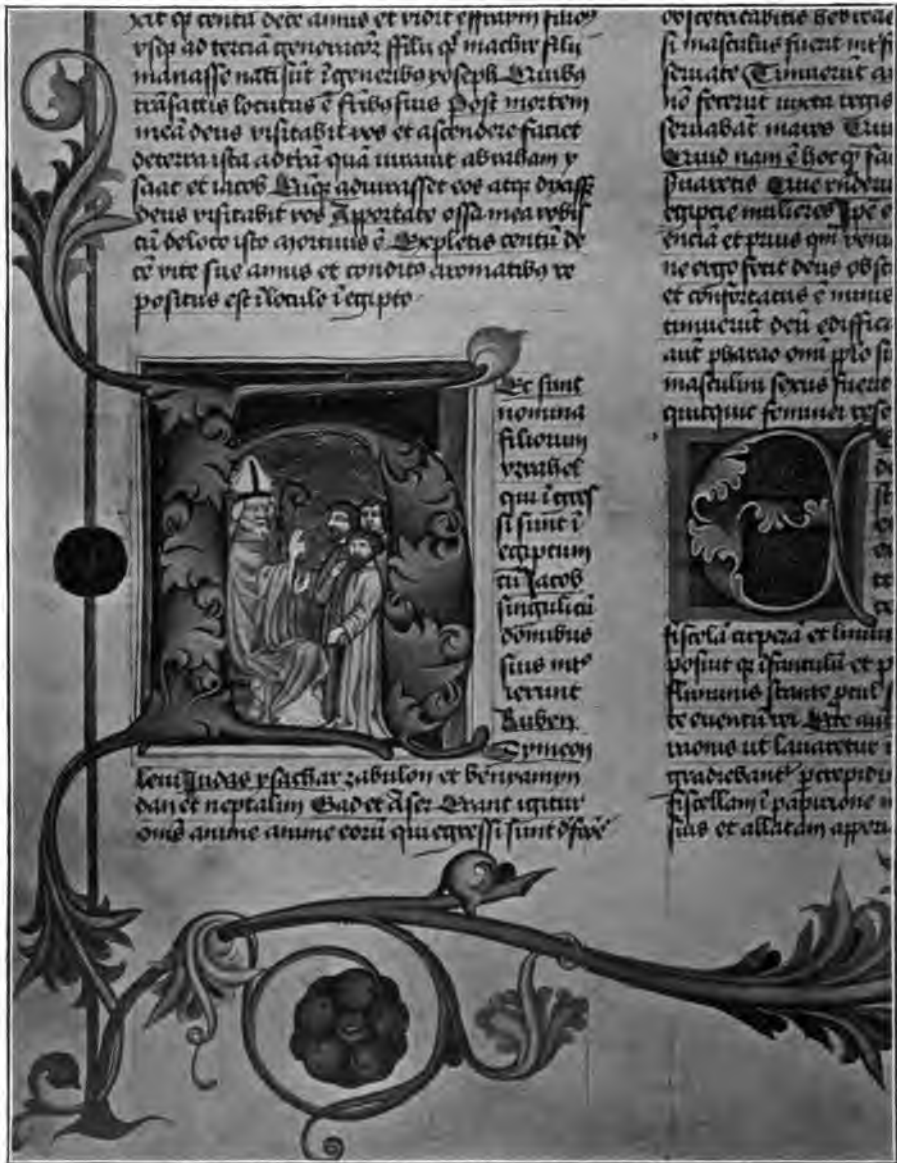 xit qƷ centū dece annis et vidit effraym filios
vsqƷ ad terciā generacōƷ ffilii qƷ machir filii
manasse nati sūt ī generibƷ yoseph QuibƷ
trāsactis locutus ē fribƷ suis Post mortem
meā deus visitabit vos et ascendere faciet
de terra ista ad trā quā iuravit abraham y
saac et iacob CūqƷ adiurasset eos atqƷ dixiss
deus visitabit vos Apportate ossa mea vobis
cū de loco isto Mortuus ē Expletis centū de
cē vite sue annis et condito aromatibƷ re
positus est ī loculo ī egipto
Ec sunt
nomina
filiorum
israhel
qui īgres
si sunt ī
egiptum
cū Jacob
singuli cū
domibus
suis int
ierunt
Ruben
Symeon
leui Judas ysachar zabulon et benyamyn
dan et neptalim Gad et Aser Erant igitur
oms anime eorū qui egressi sunt d
obstetricabitis hebreae
si masculus fuerit int
seruate Timuerūt
nō fecerūt iuxta regis
seruabāt mares
Quid nam ē hoc qƷ
puaretis Que
egiptie mulieres Ipē
enciā et prius qm veni
ne ergo fecit deus obst
et confortatus ē nimis
timuerūt deū edifica
aut pharao omī pplo su
masculini sexus fuerit
quitquit feminei rese
fiscolā et
posuit qƷ īfantulū et
fluminis stante
te eventū rei Ecce aut
raonis ut lavaretur
gradiebant p crepidi
fiscellam ī papirione
suis et allatam aperi